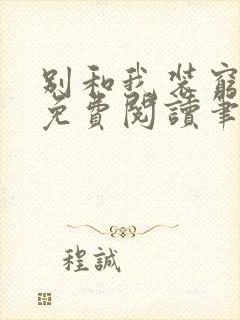 別和我裝窮
免費閱讀筆
程誠